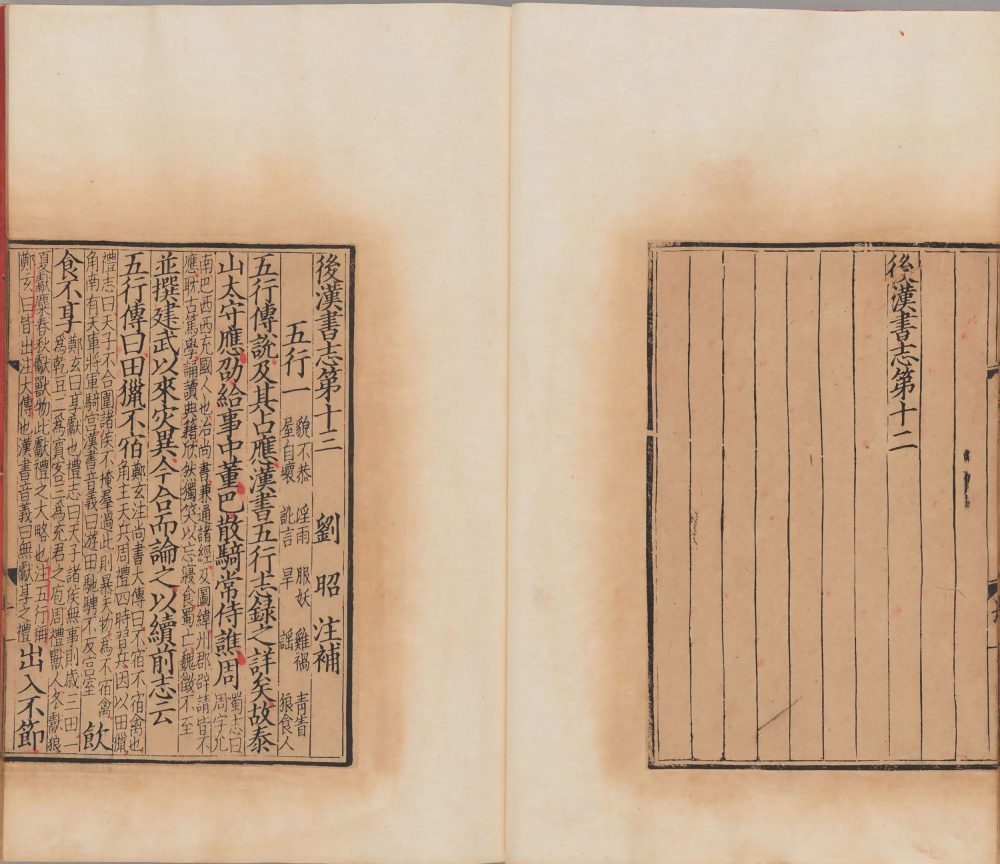 後漢書志第十二
後漢書志第十三　劉昭注補
五行一
貌不恭　淫雨　服妖　雞禍　青眚
屋自壞　訛言　旱　謠　狼食人
五行傳說及其占應漢書五行志錄之詳矣故泰
山太守應劭給事中董巴散騎常侍譙周
蜀志曰
周字允
南巴西西充國人也治尚書兼通諸經及圖緯州郡辟請皆不
應耽古篤學誦讀典籍欣然獨笑以忘寢食蜀亡魏徵不至
並撰建武以來災異今合而論之以續前志云
五行傳曰田獵不宿
鄭玄注尚書大傳曰不宿不宿禽也
角主天兵周禮四時習兵因以田獵
禮志曰天子不合圍諸侯不掩羣過此則暴天物為不宿禽
角南有天庫將軍騎官漢書音義曰遊田馳騁不反宮室
飲
食不享
鄭玄曰享獻也禮志曰天子諸侯無事則歲三田一
為乾豆二為賓客三為充君之庖周禮獸人冬獻狼
夏獻麋春秋獻獸物此獻禮之大略也注五行稱
鄭玄曰皆出注大傳也漢書音義曰無獻享之禮
出入不節